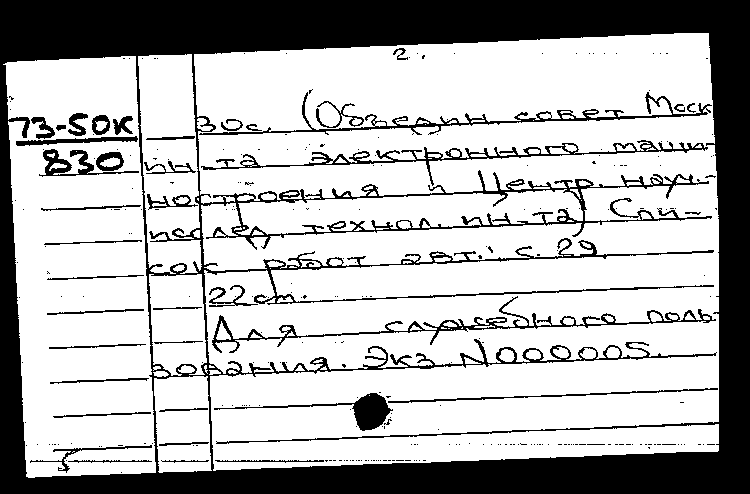 2.
73-50К
830
30с. (Объедин совет Моск
ин-та электронного маши-
ностроения и Центр. науч.-
исслед. технол. ин-та) Спи-
сок работ авт.: с. 29.
22 см.
Для служебного поль-
зования. Экз. N000005.